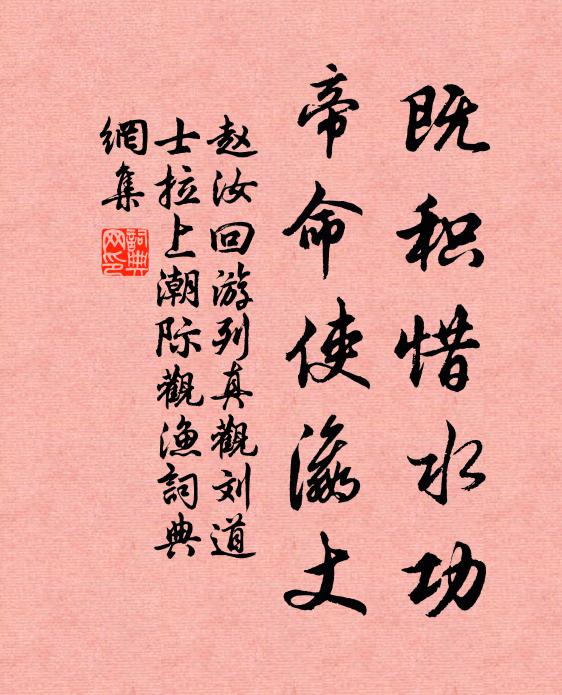 既积惜水功
帝命使瀛丈
赵汝回游列真觀刘道
士拉上潮际觀漁詞典
網集
詞典网印